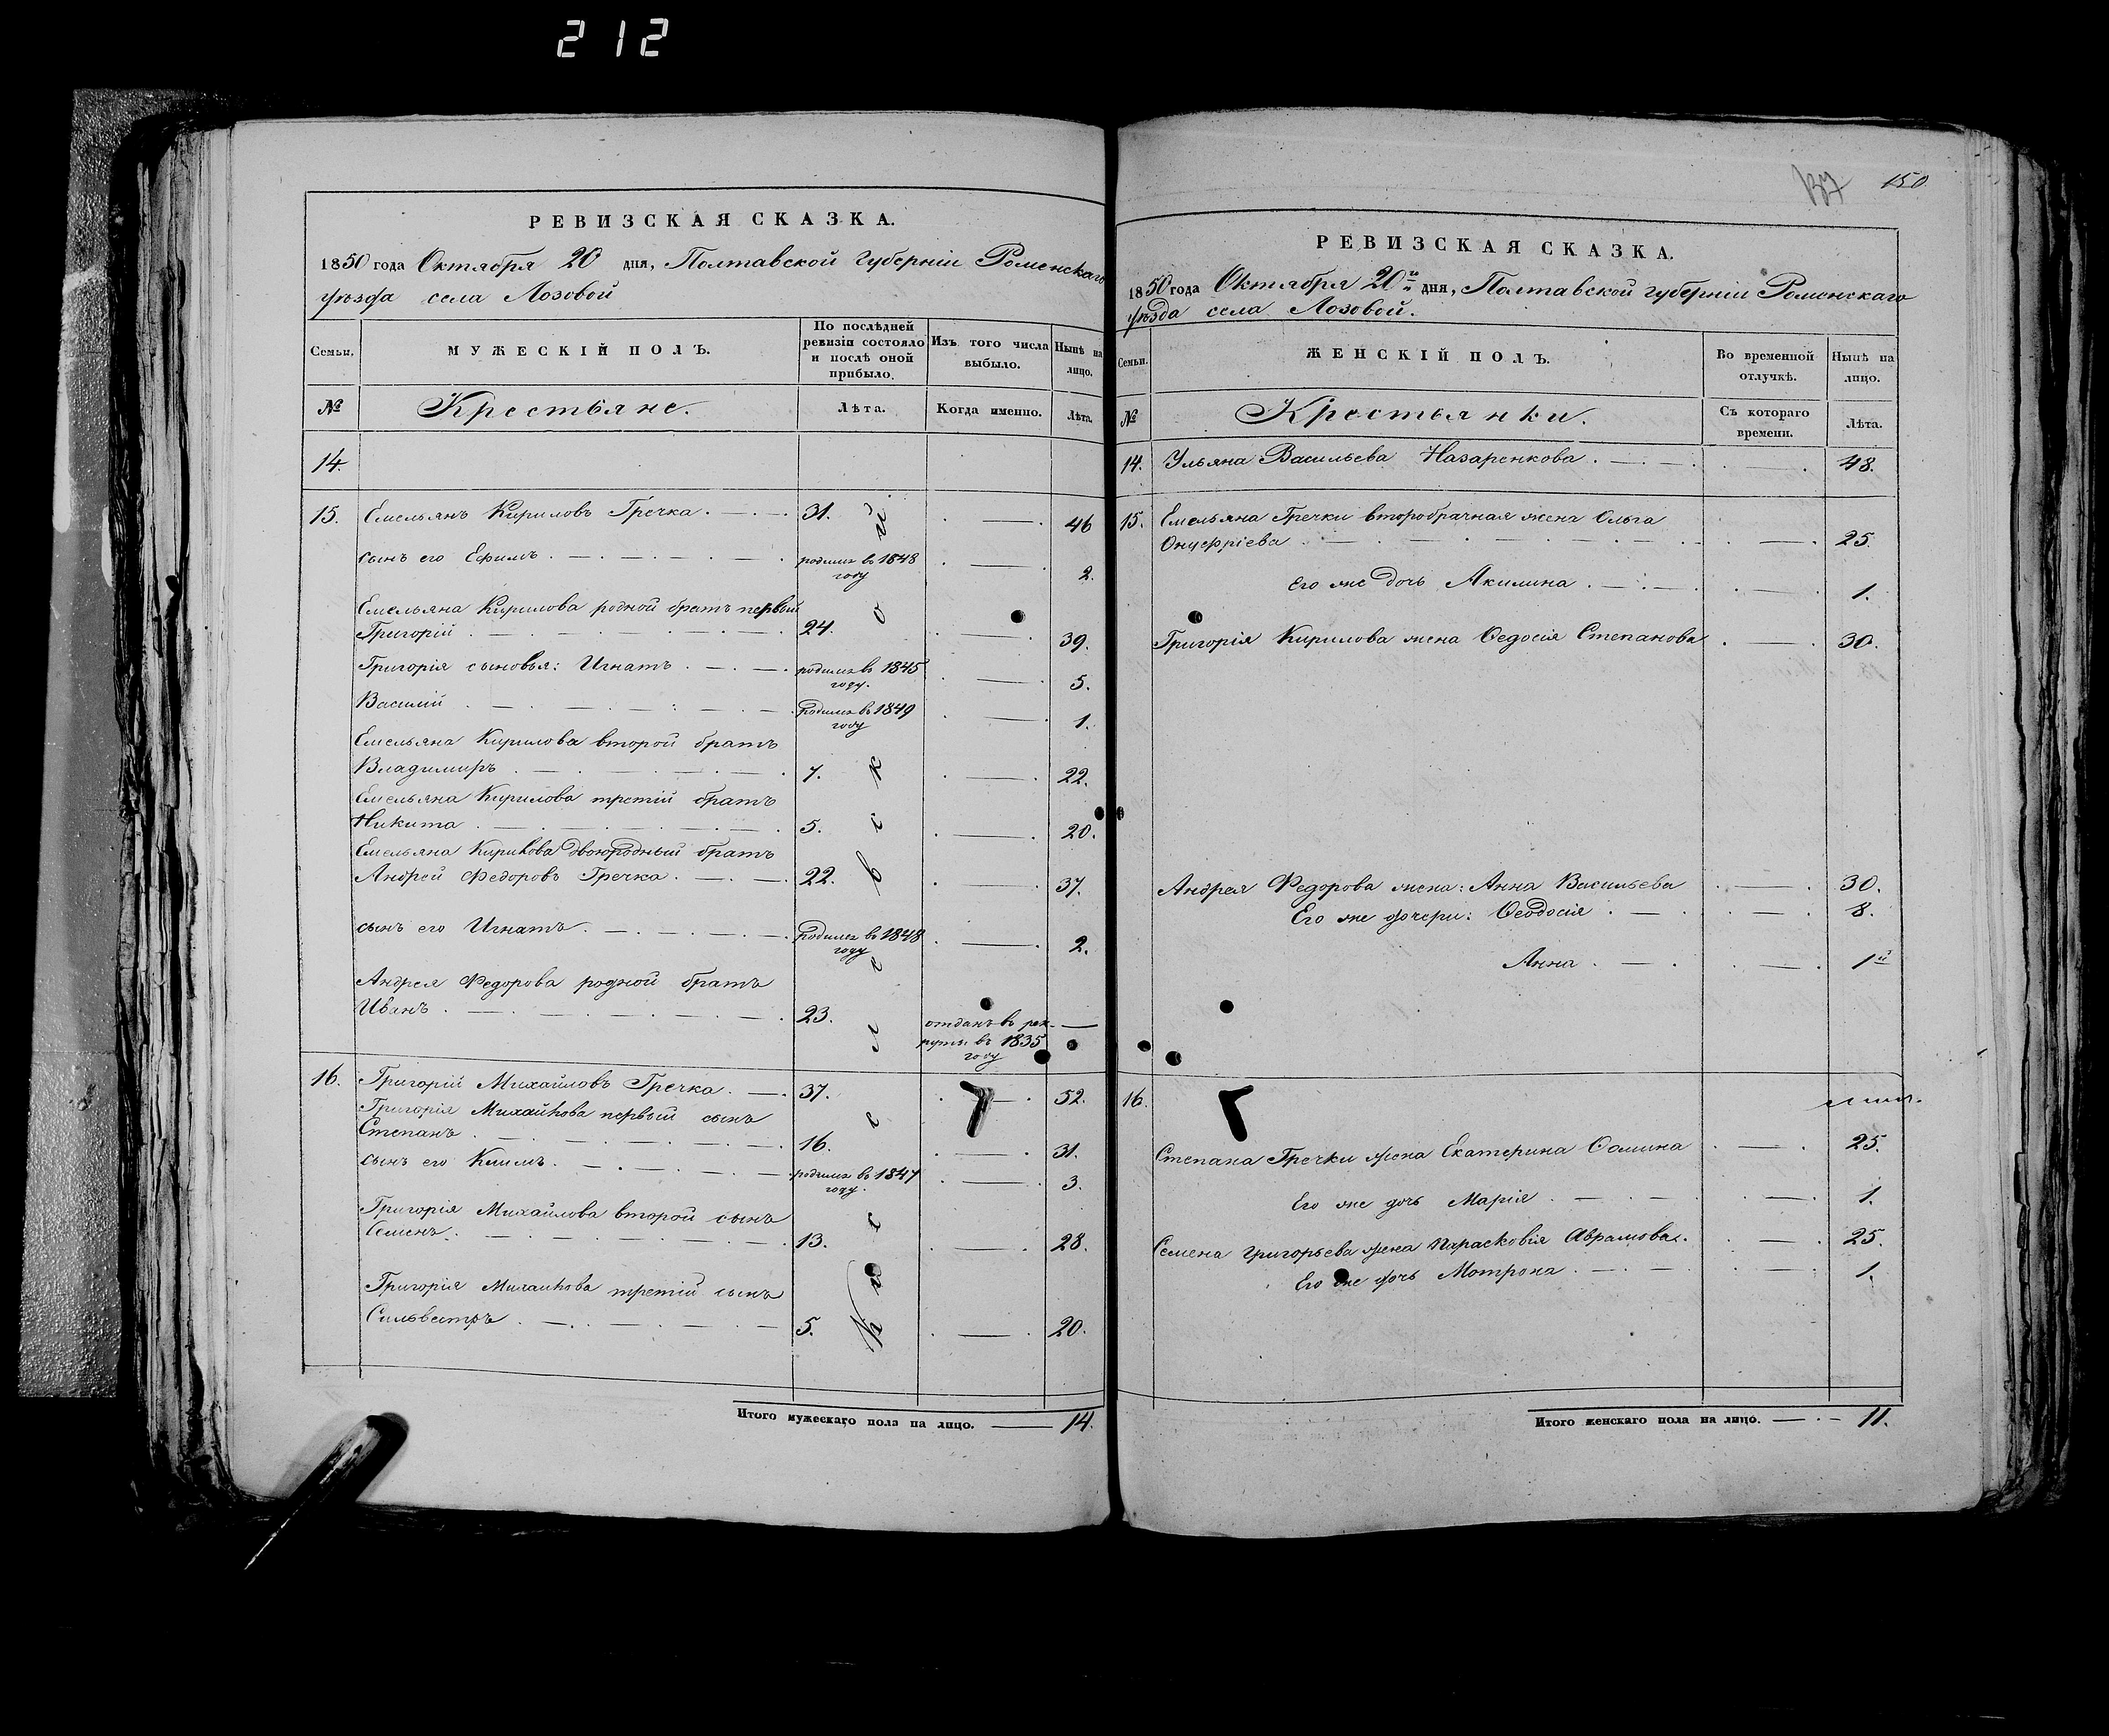 212
РЕВИЗСКАЯ СКАЗКА.
1850 года Октября 20 дня, Полтавской губерніи Роменскаго
уѣзда села Лозовой
Семьи.
МУЖЕСКІЙ ПОЛЪ.
По послѣдней
ревизіи состояло
и послѣ оной
прибыло.
Изъ того числа
выбыло.
Нынѣ на
лицо.
№ Крестьяне. Лѣта. Когда именно. Лѣта.
14.
15. Емельянъ Кириловъ Гречка. 31. 46
сынъ его Ефимъ родился въ 1848
году 2.
Емельяна Кирилова родной братъ первый
Григорій 24. 39.
Григорія сыновья: Игнатъ родился въ 1845
году. 5.
Василій родился въ 1849
году 1.
Емельяна Кирилова второй братъ
Владимиръ 7. 22.
Емельяна Кирилова третій братъ
Никита 5. 20.
Емельяна Кирилова двоюродный братъ
Андрей Федоровъ Гречка. 22. 37.
сынъ его Игнатъ. родился въ 1848
году 2.
Андрея Федорова родной братъ
Иванъ 23. отданъ въ рек-
руты въ 1835
году
16. Григорій Михайловъ Гречка. 37. 52.
Григорія Михайлова первый сынъ
Степанъ 16. 31.
сынъ его Климъ. родился въ 1847
году. 3.
Григорія Михайлова второй сынъ
Семенъ. 13. 28.
Григорія Михайлова третій сынъ
Сильвестръ 5. 20.
Итого мужескаго пола на лицо. 14.
137 150
РЕВИЗСКАЯ СКАЗКА.
1850 года Октября 20го дня, Полтавской губерніи Роменскаго
уѣзда села Лозовой.
Семьи.
ЖЕНСКІЙ ПОЛЪ.
Во временной
отлучкѣ.
Нынѣ на
лицо.
№ Крестьянки. Съ котораго
времени. Лѣта.
14. Ульяна Васильева Назаренкова 48.
15. Емельяна Гречки второбрачная жена Ольга
Онуфріева 25.
Его же дочь Акилина 1.
Григорія Кирилова жена Ѳедосія Степанова 30.
Андрея Федорова жена: Анна Васильева 30.
Его же дочери: Ѳеодосія 8.
Анна 1й
16.
Степана Гречки жена Екатерина Ѳомина 25.
Его же дочь Марія 1.
Семена Григорьева жена Парасковія Аврамова. 25.
Его же дочь Мотрона 1.
Итого женскаго пола на лицо. 11.